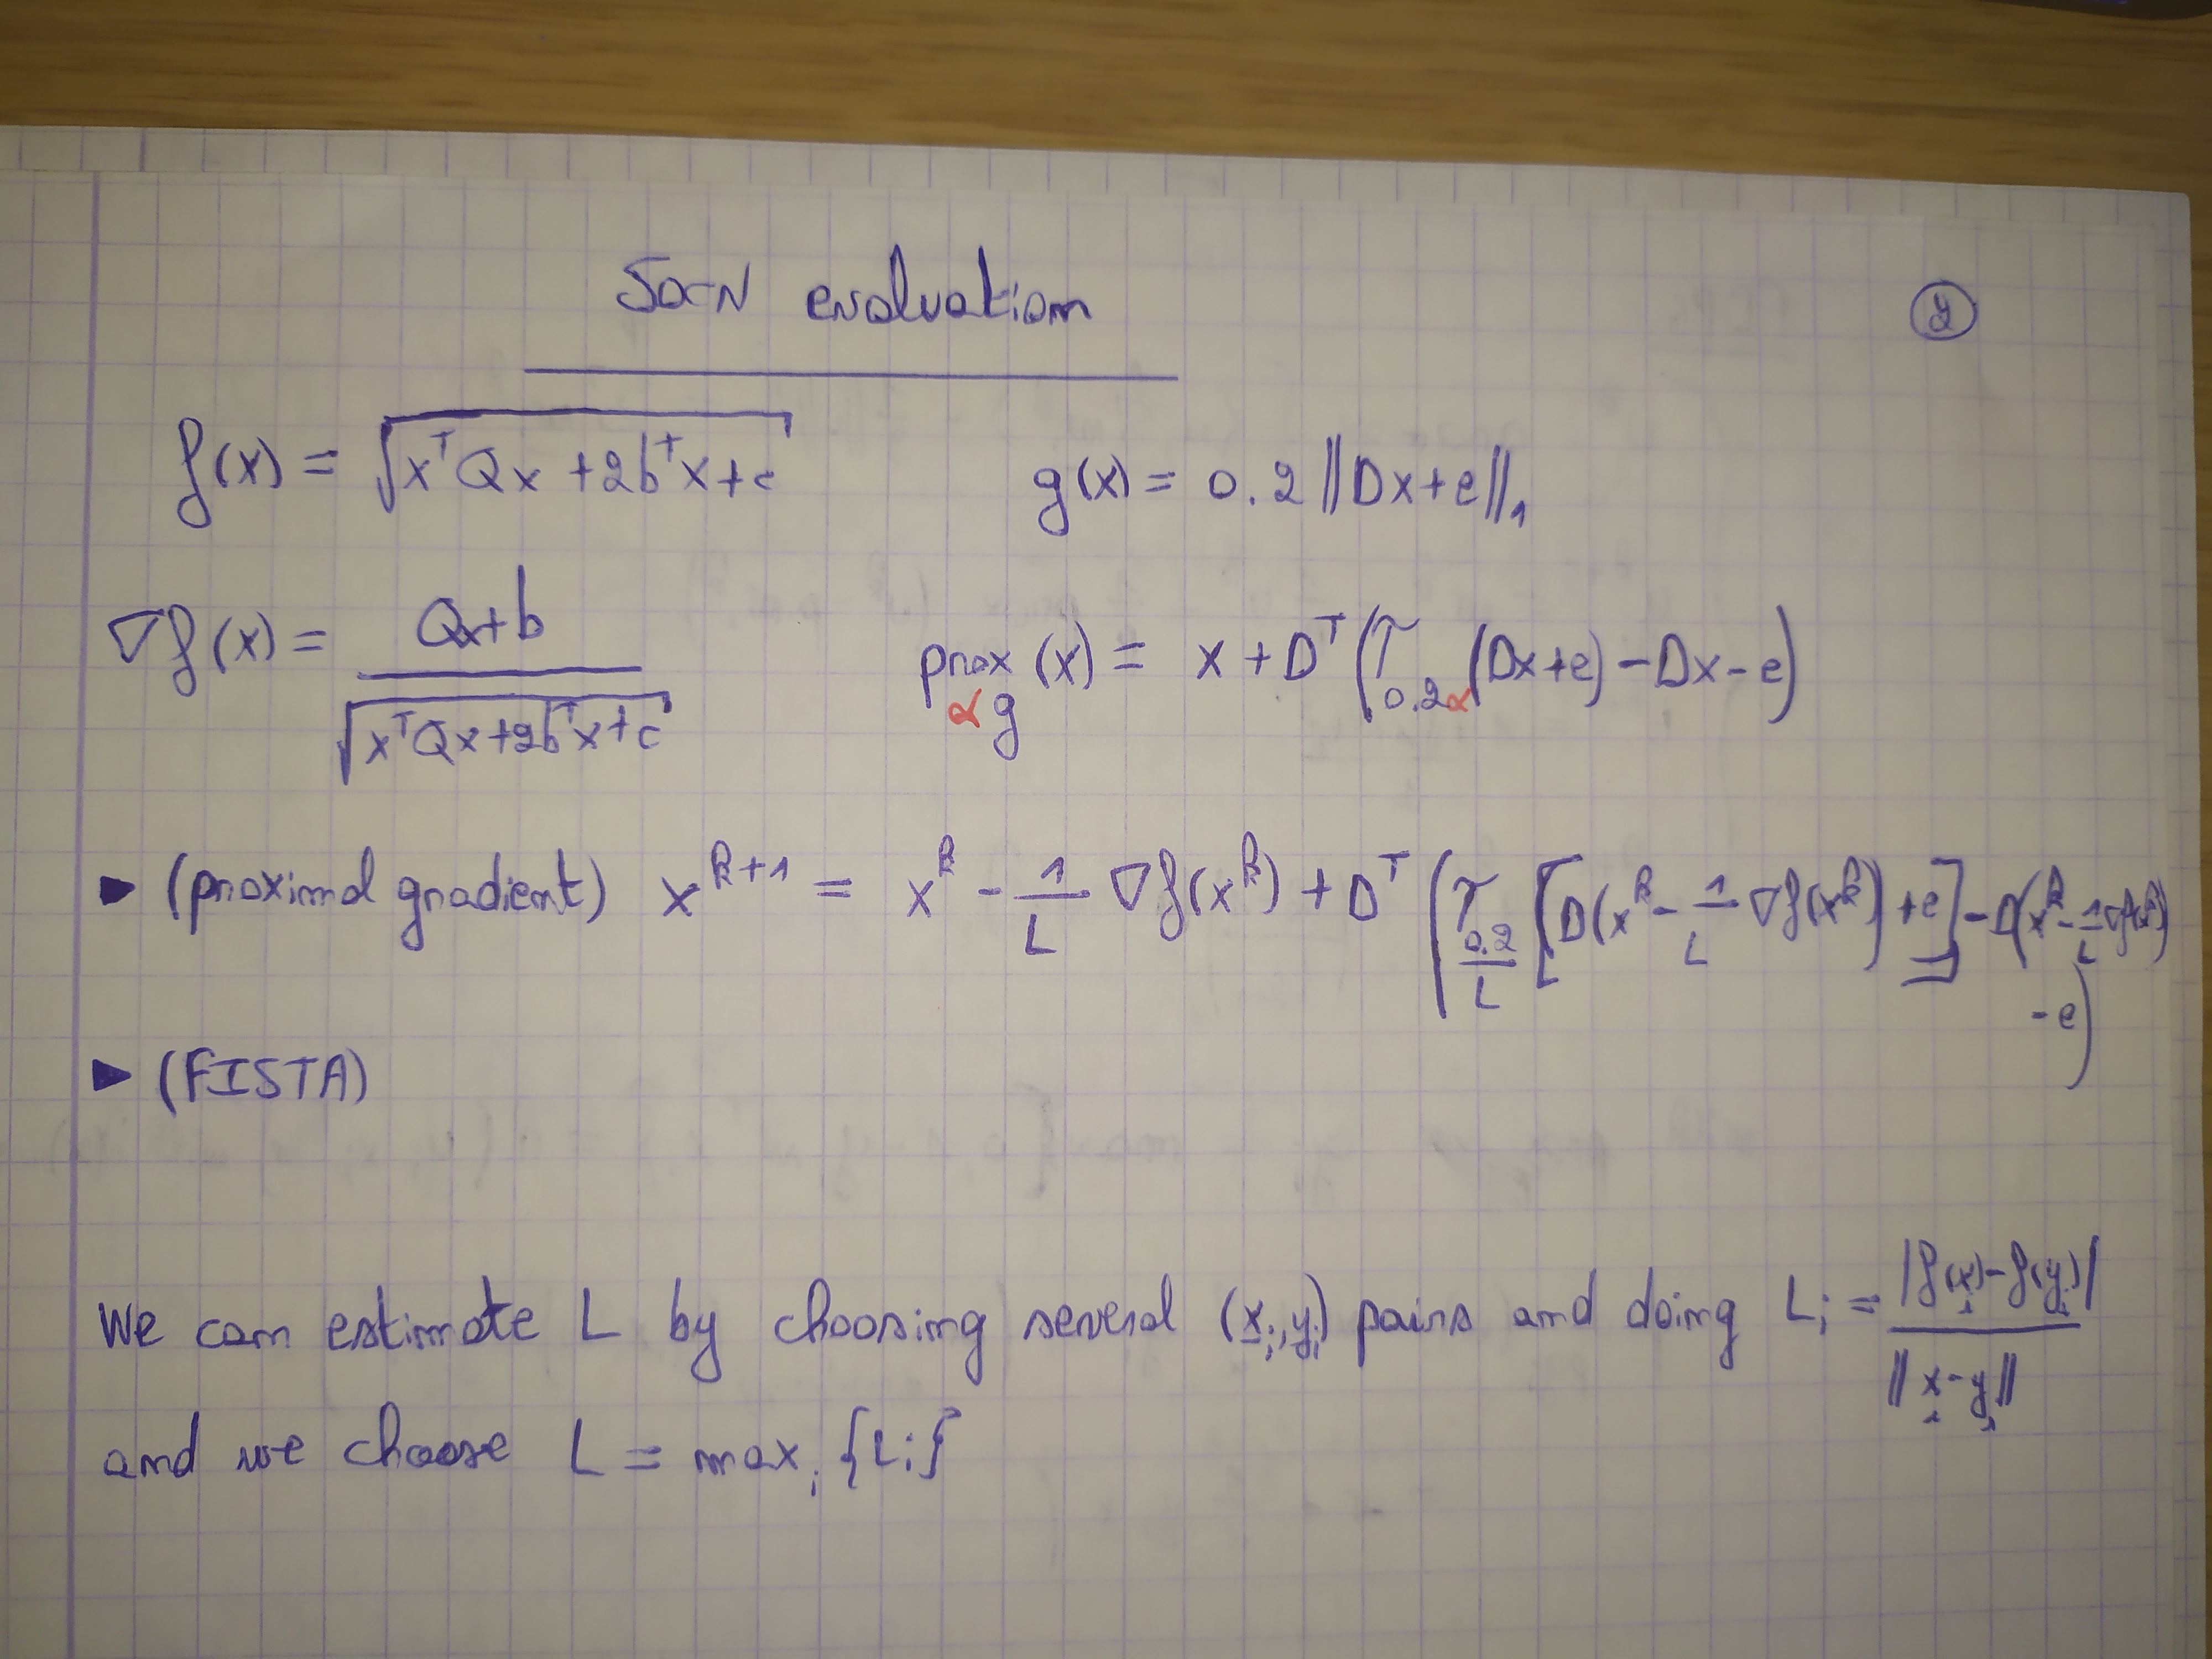 Jo-N evaluation
②
f(x) = √(xᵀQx + 2bᵀx + c)     g(x) = 0.2 ||Dx+e||₁
∇f(x) = (Qx+b) / √(xᵀQx+2bᵀx+c)     prox_αg (x) = x + Dᵀ(𝒯_0.2α (Dx+e) − Dx − e)
► (proximal gradient) x^{k+1} = x^k − 1/L ∇f(x^k) + Dᵀ(𝒯_{0.2/L} [D(x^k − 1/L ∇f(x^k)) + e] − D(x^k − 1/L ∇f(x^k))
− e)
► (FISTA)
We can estimate L by choosing several (x_i, y_i) pairs and doing L_i = |f(x_i) − f(y_i)| / ||x_i − y_i||
and we choose L = max_i {L_i}